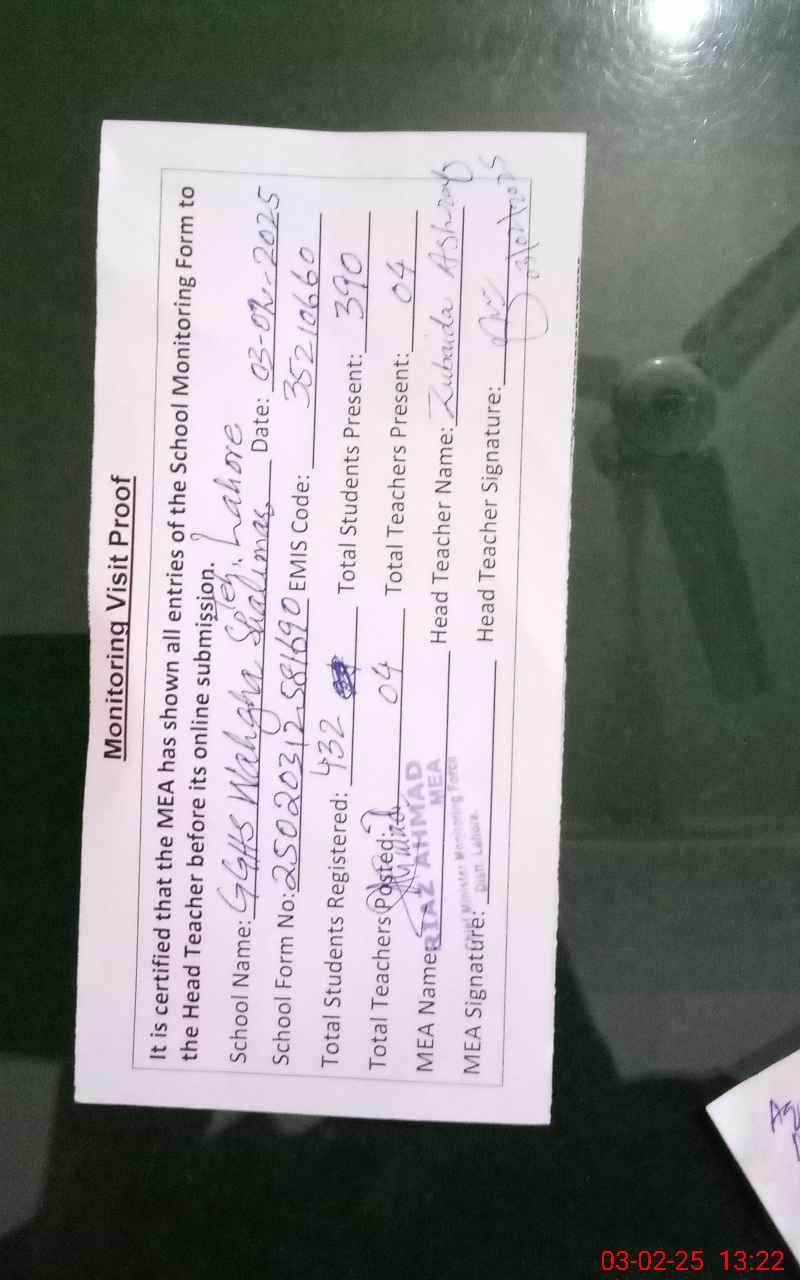 Monitoring Visit Proof
It is certified that the MEA has shown all entries of the School Monitoring Form to
the Head Teacher before its online submission.
School Name: GGHS Wahgha Shalimar Teh, Lahore Date: 03-02-2025
School Form No: 25020312581690 EMIS Code: 35210660
Total Students Registered: 432 Total Students Present: 390
Total Teachers Posted: 04 Total Teachers Present: 04
MEA Name: RIAZ AHMAD Head Teacher Name: Zubaida Ashraf
MEA
Chief Minister Monitoring Force
MEA Signature: Distt. Lahore. Head Teacher Signature:
03/02/2025
03-02-25 13:22